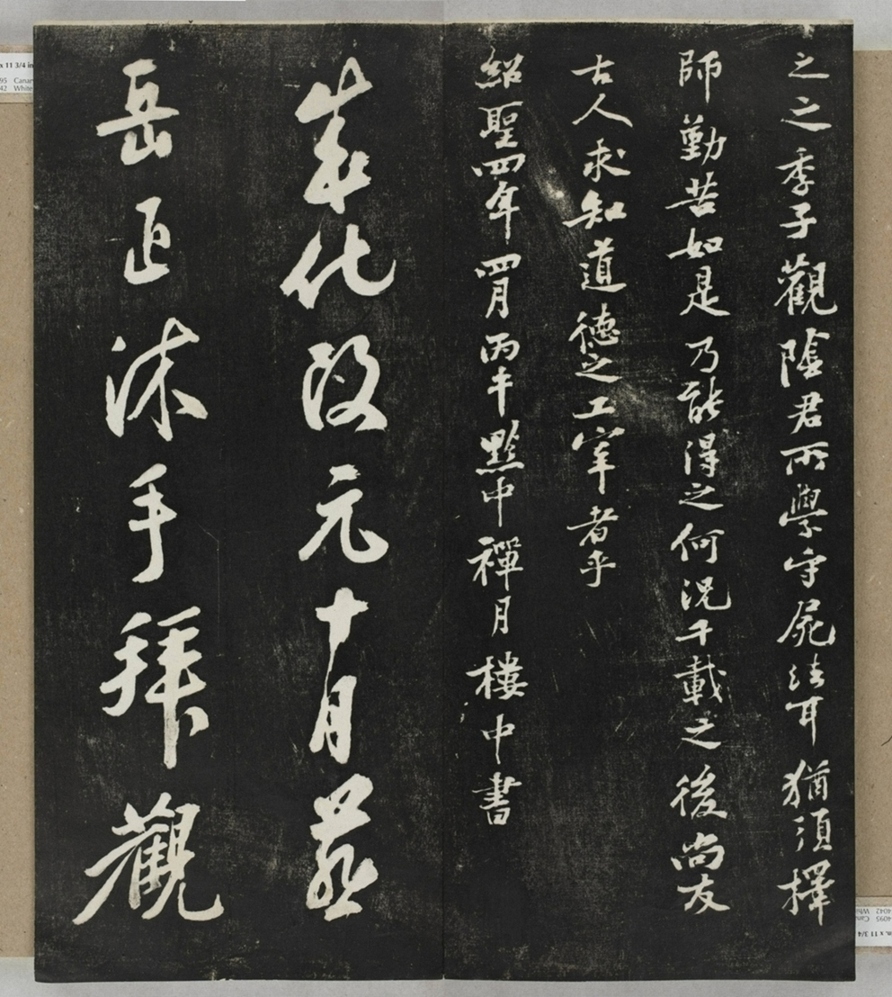 之之季子觀陰君所學守屍法耳猶須擇
師勤苦如是乃能得之何況千載之後尚友
古人求知道德之工宰者乎
紹聖四年四月丙午黔中禪月樓中書
成化改元十月燕
岳正沐手拜觀
x 11 3/4 in